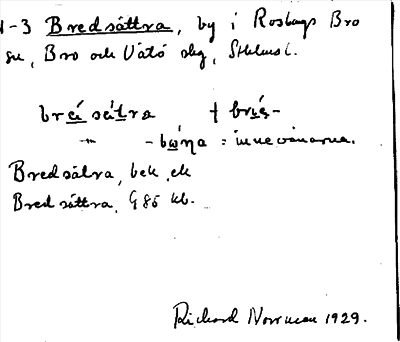 1-3 Bredsättra, by i Roshags Bro
sn, Bro och Vätö slg, Sthlmsl.
breísätra † brìes-
–"– -bòŋa = innevånarna.
Bredsätra, bek, ek
Bredsättra, G 86 kb.
Richard Norrman 1929.